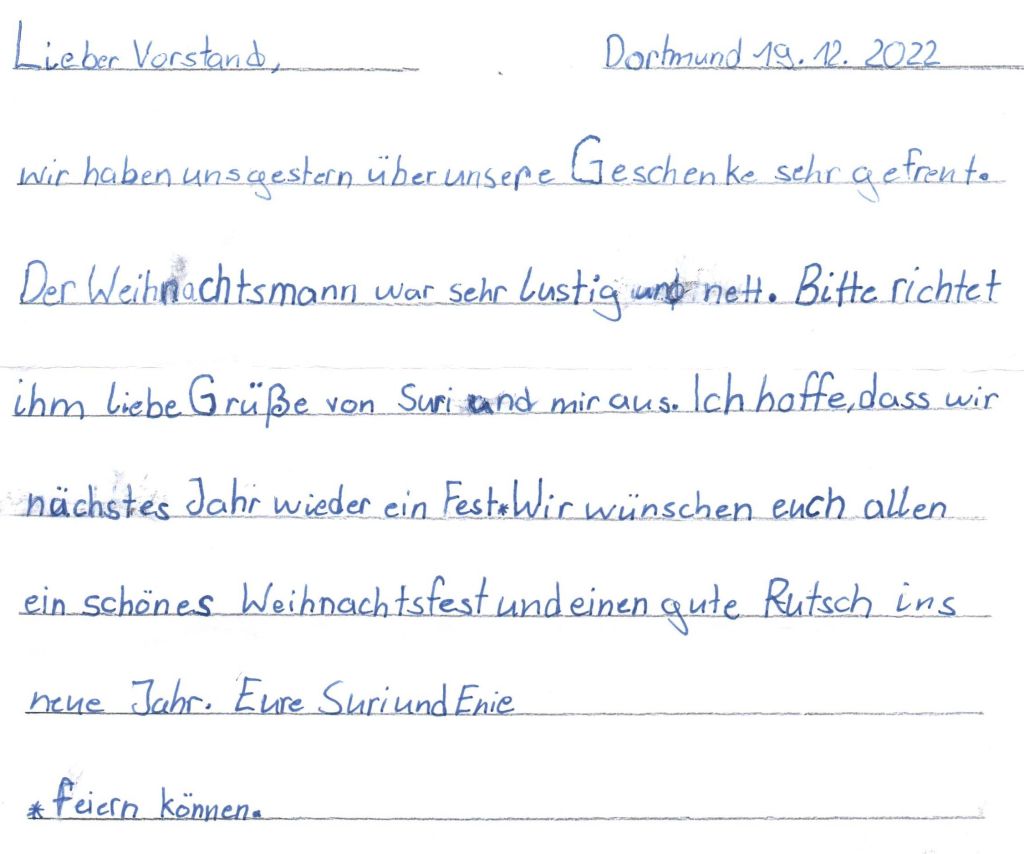 Lieber Vorstand, Dortmund 19.12.2022
wir haben uns gestern über unsere Geschenke sehr gefreut.
Der Weihnachtsmann war sehr lustig und nett. Bitte richtet
ihm liebe Grüße von Suri und mir aus. Ich hoffe, dass wir
nächstes Jahr wieder ein Fest* Wir wünschen euch allen
ein schönes Weihnachtsfest und einen gute Rutsch ins
neue Jahr. Eure Suri und Enie
* feiern können.